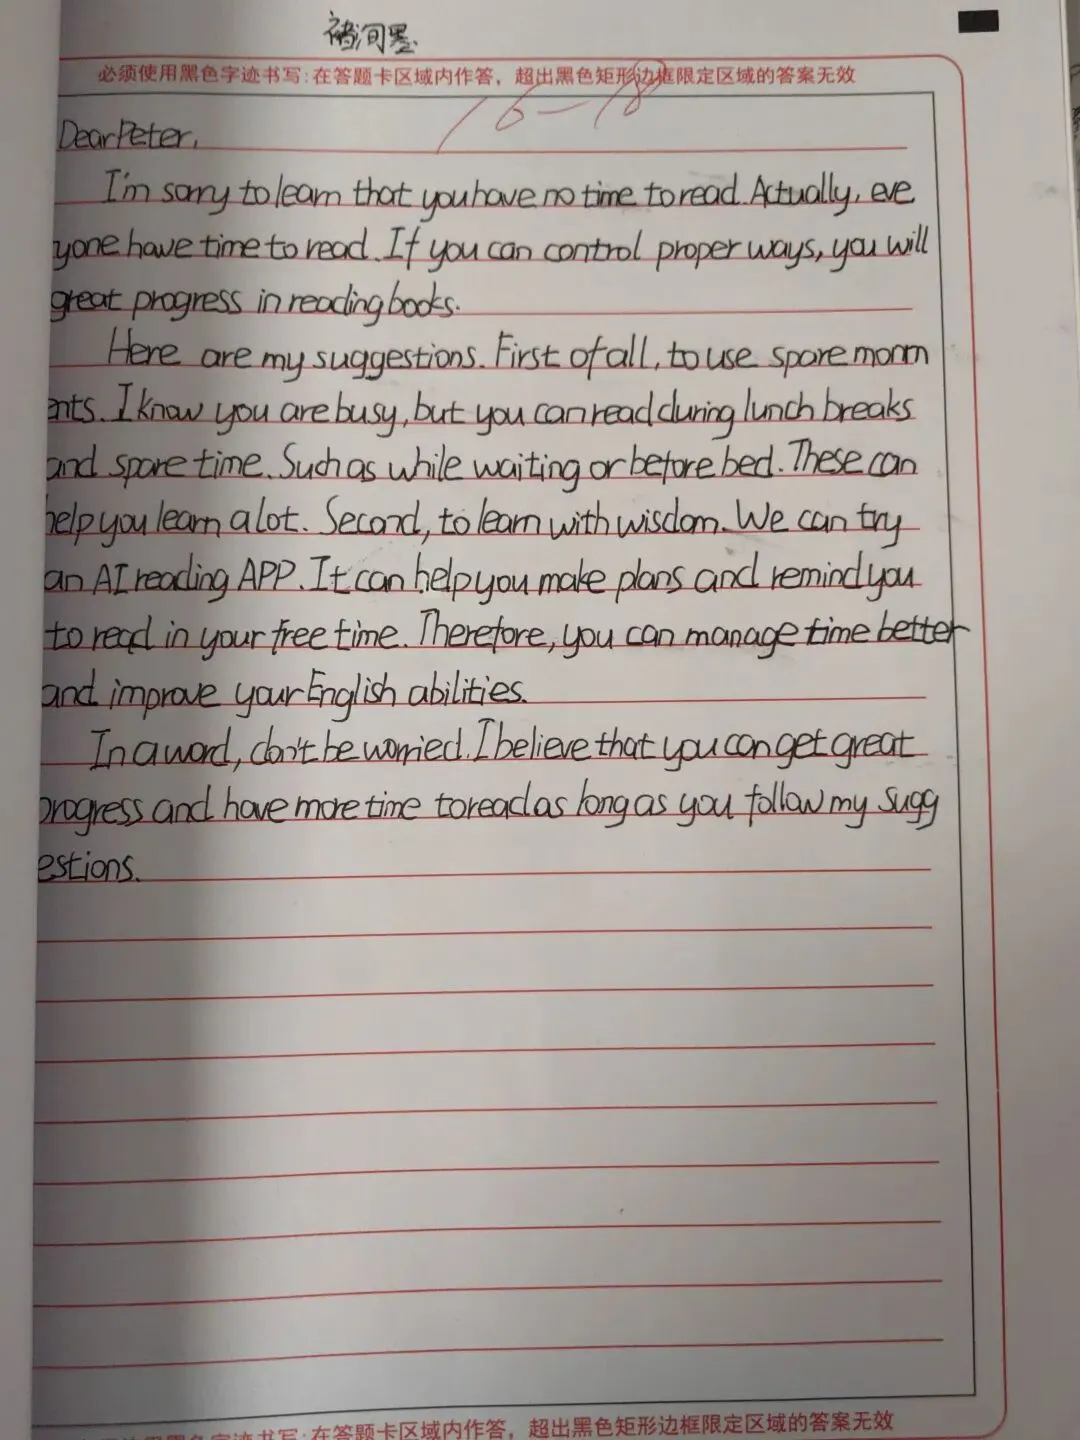 褚润墨
必须使用黑色字迹书写:在答题卡区域内作答，超出黑色矩形边框限定区域的答案无效
16-18
Dear Peter,
I'm sorry to learn that you have no time to read. Actually, eve
yone have time to read. If you can control proper ways, you will
great progress in reading books.
Here are my suggestions. First of all, to use spare morm
ents. I know you are busy, but you can read during lunch breaks
and spare time. Such as while waiting or before bed. These can
help you learn a lot. Second, to learn with wisdom. We can try
an AI reading APP. It can help you make plans and remind you
to read in your free time. Therefore, you can manage time better
and improve your English abilities.
In a word, don't be worried. I believe that you can get great
progress and have more time to read as long as you follow my sugg
estions.
使用黑色字迹书写:在答题卡区域内作答，超出黑色矩形边框限定区域的答案无效